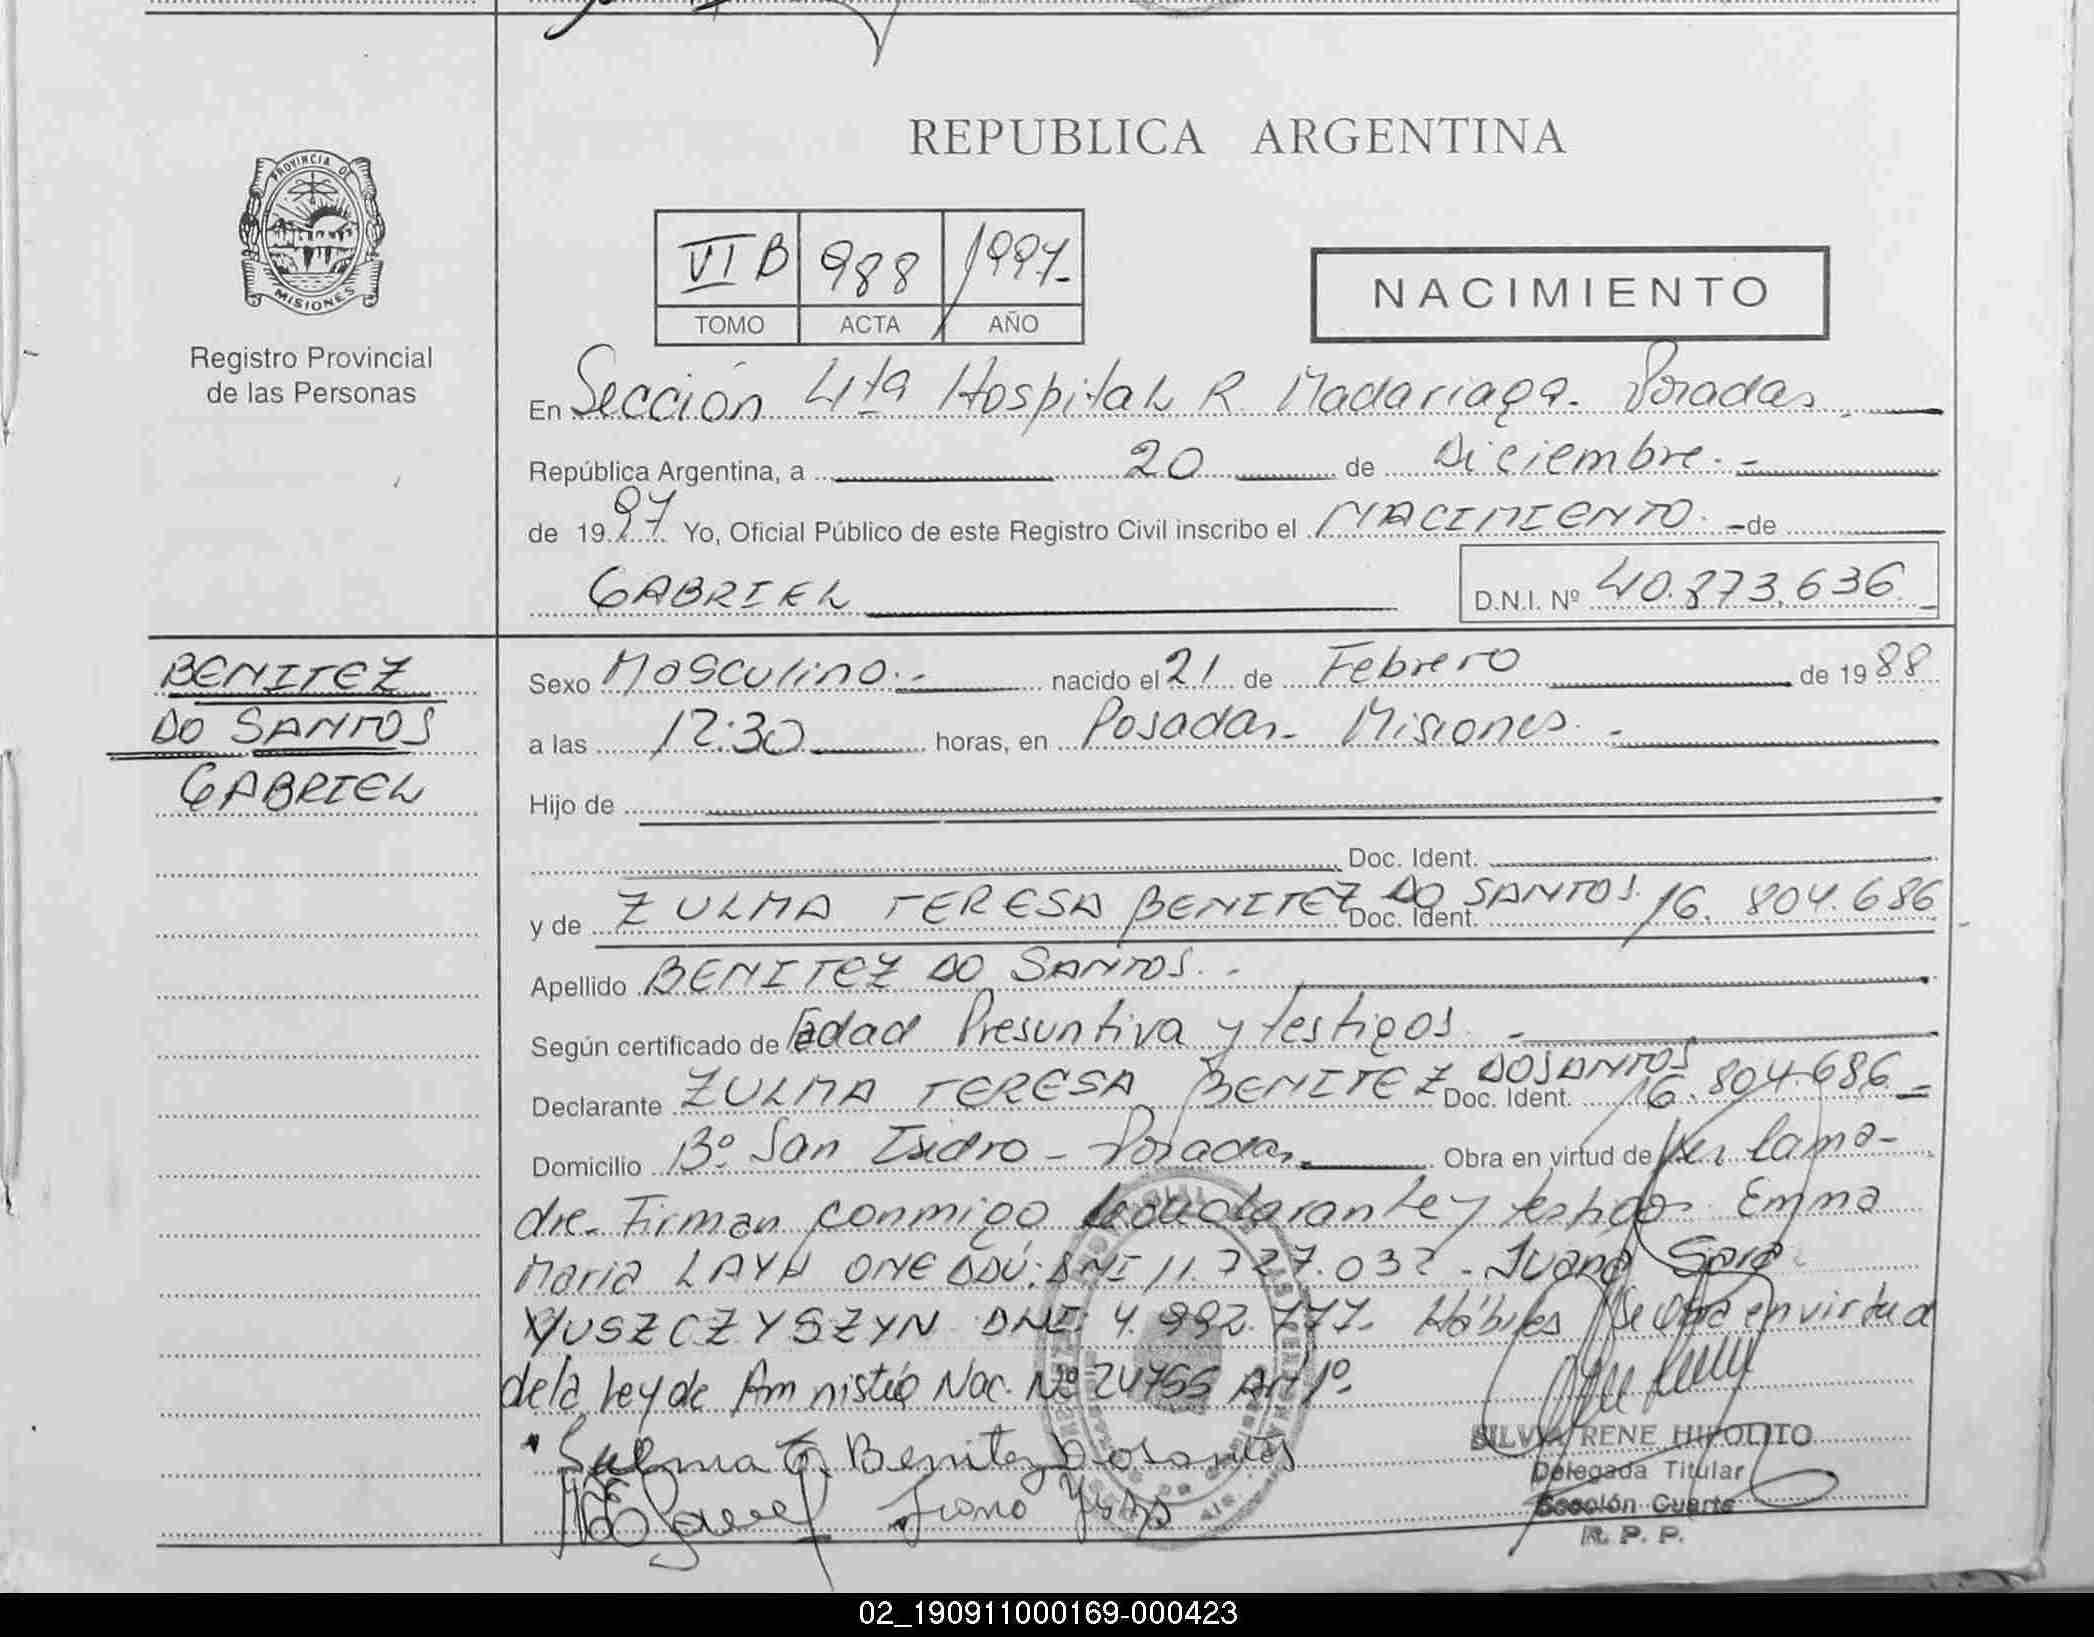 REPUBLICA ARGENTINA
PROVINCIA DE
MISIONES
Registro Provincial
de las Personas
VI B 988 1997.-
TOMO ACTA AÑO
NACIMIENTO
En Sección 4ta Hospital R. Madariaga. Posadas
República Argentina, a 20 de Diciembre.-
de 1997 Yo, Oficial Público de este Registro Civil inscribo el NACIMIENTO.- de
GABRIEL D.N.I. Nº 40.873.636.-
BENITEZ
DO SANTOS
GABRIEL
Sexo Masculino.- nacido el 21 de Febrero de 1988
a las 12:30 horas, en Posadas- Misiones.-
Hijo de
Doc. Ident.
y de ZULMA TERESA BENITEZ DO SANTOS. Doc. Ident. 16.804.686
Apellido BENITEZ DO SANTOS.-
Según certificado de Edad Presuntiva y testigos.-
Declarante ZULMA TERESA BENITEZ DOSANTOS Doc. Ident. 16.804.686.-
Domicilio Bº San Isidro - Posadas Obra en virtud de ser la ma-
dre- Firman conmigo declarante y testigos Emma
Maria LAYH ONEDDÚ: DNI 11.727.032 - Juana Sara
YUSZCZYSZYN DNI: 4.992.777. Hábiles Se Obra en virtud
de la Ley de Amnistía Nac. Nº 24755 Art 1º.
Sulma T. Benitez Dosantos
SILVIA RENE HIPOLITO
Delegada Titular
Sección Cuarta
R. P. P.
02_190911000169-000423